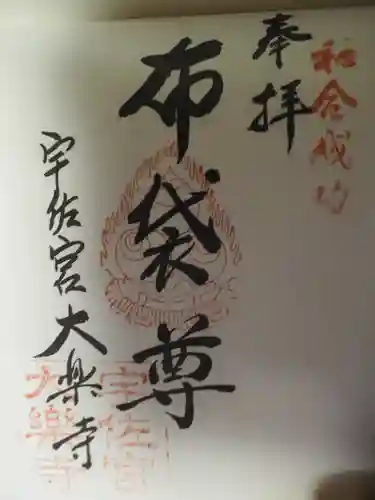 和合成功
奉拝
布袋尊
宇佐宮大楽寺
宇佐宮
大樂寺